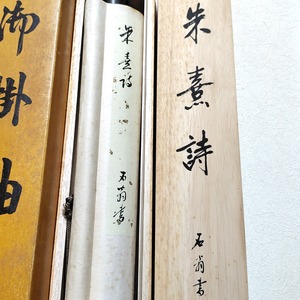 朱熹詩
石翁書
朱熹詩
石翁書
御掛軸